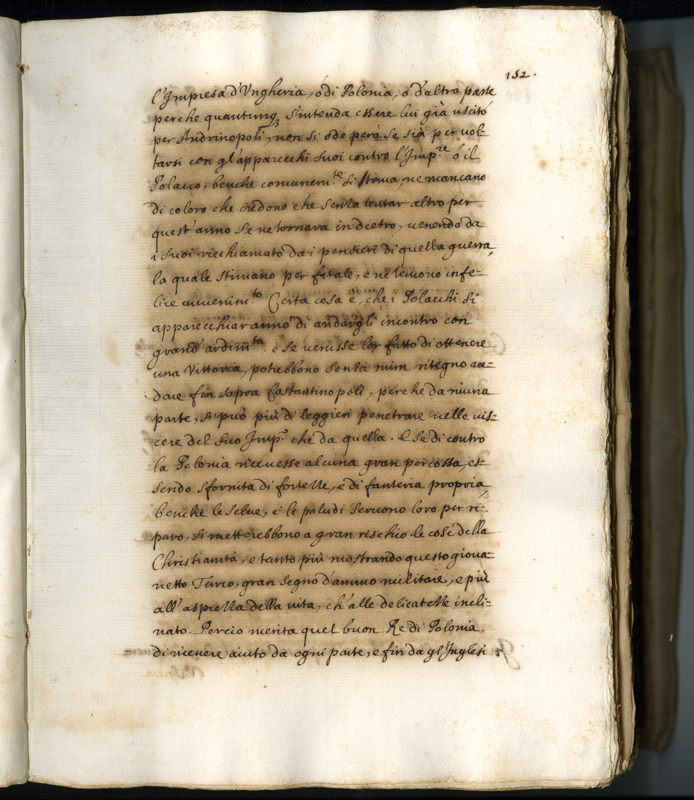 152.
l'Impresa d'Vngheria, ó di Polonia, ó d'altra parte
perche quantunq3 s'intenda essere lui già uscito
per Andrinopoli, non si ode però se sia per uol
tarsi con gl'apparecchi suoi contro l'Imp.re ó il
Polacco, benche comunem.te si stima, ne mancano
di coloro che credono che senza tentar altro per
quest'anno se ne tornava in dietro, uenendo da
i suoi ricchiamato da i pensieri di quella guerra,
la quale stimano per fatale, e ne temono infe-
lice auuenim.to Certa cosa è, che i Polacchi si
apparecchiaranno di andargli incontro con
grand'ardim.to, e se uenisse lor fatto di ottenere
una Vittoria, potrebbono senza niun ritegno an-
dare fin sopra Costantinopoli, perche da niuna
parte, si può più di leggieri penetrare nelle uis-
cere del suo Imp.o che da quella. E se di contro
la Polonia riceuesse alcuna gran percossa, es-
sendo sfornita di fortezze, e di fanteria propria,
benche le selue, e le paludi seruono loro per ri-
paro, si metterebbono a gran rischio le cose della
Christianità, e tanto più mostrando questo gioua
netto Turco, gran segno d'animo militare, e più
all'asprezza della uita, ch'alle delicatezze incli-
nato. Percio merita quel buon Re di Polonia
di riceuere aiuto da ogni parte, e fin da gl'Inglesi